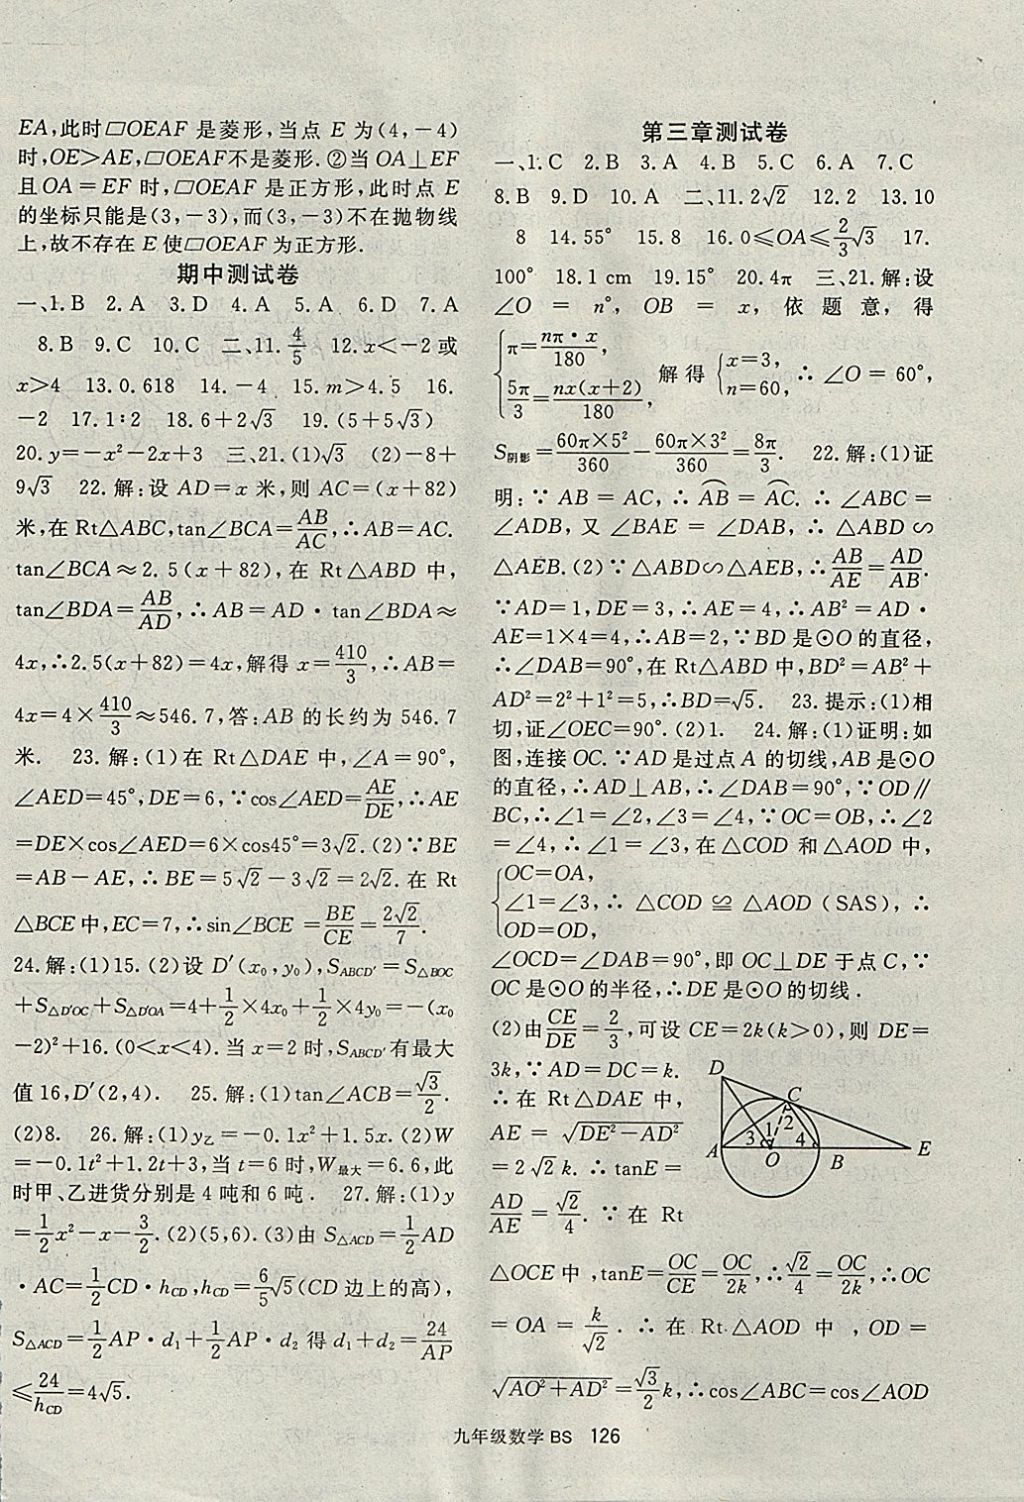 EA,此时▱OEAF 是菱形,当点 E 为(4,-4)
时,OE>AE,▱OEAF不是菱形.②当 OA⊥EF
且OA=EF 时,▱OEAF 是正方形,此时点 E
的坐标只能是(3,-3),而(3,-3)不在抛物线
上,故不存在 E 使▱OEAF 为正方形.
期中测试卷
一、1.B 2.A 3.D 4.A 5.A 6.D 7.A
8.B 9.C 10.C 二、11.4/5 12.x<-2或
x>4 13.0.618 14.-4 15.m>4.5 16.
-2 17.1∶2 18.6+2√3 19.(5+5√3)
20.y=-x²-2x+3 三、21.(1)√3 (2)-8+
9√3 22.解:设 AD=x 米,则 AC=(x+82)
米,在 Rt△ABC,tan∠BCA=AB/AC,∴AB=AC.
tan∠BCA≈2.5(x+82),在 Rt△ABD 中,
tan∠BDA=AB/AD,∴AB=AD·tan∠BDA≈
4x,∴2.5(x+82)=4x,解得 x=410/3,∴AB=
4x=4×410/3≈546.7,答:AB 的长约为 546.7
米. 23.解:(1)在 Rt△DAE 中,∠A=90°,
∠AED=45°,DE=6,∵cos∠AED=AE/DE,∴AE
=DE×cos∠AED=6×cos45°=3√2.(2)∵BE
=AB-AE,∴BE=5√2-3√2=2√2.在 Rt
△BCE 中,EC=7,∴sin∠BCE=BE/CE=2√2/7.
24.解:(1)15.(2)设 D′(x₀,y₀),S_ABCD′=S_△BOC
+S_△D′OC+S_△D′OA=4+1/2×4x₀+1/2×4y₀=-(x₀
-2)²+16.(0<x<4).当 x=2 时,S_ABCD′有最大
值 16,D′(2,4). 25.解:(1)tan∠ACB=√3/2.
(2)8. 26.解:(1)y乙=-0.1x²+1.5x.(2)W
=-0.1t²+1.2t+3,当 t=6 时,W最大=6.6,此
时甲、乙进货分别是 4 吨和 6 吨. 27.解:(1)y
=1/2x²-x-3/2.(2)(5,6).(3)由 S_△ACD=1/2AD
·AC=1/2CD·h_CD,h_CD=6/5√5(CD 边上的高),
S_△ACD=1/2AP·d₁+1/2AP·d₂ 得 d₁+d₂=24/AP
≤24/h_CD=4√5.
第三章测试卷
一、1.C 2.B 3.A 4.B 5.C 6.A 7.C
8.B 9.D 10.A 二、11.2√2 12.2 13.10
8 14.55° 15.8 16.0≤OA≤2/3√3 17.
100° 18.1 cm 19.15° 20.4π 三、21.解:设
∠O=n°,OB=x,依题意,得
{π=nπ·x/180, 5π/3=nx(x+2)/180, 解得{x=3, n=60,∴∠O=60°,
S阴影=60π×5²/360-60π×3²/360=8π/3. 22.解:(1)证
明:∵AB=AC,∴⌒AB=⌒AC.∴∠ABC=
∠ADB,又∠BAE=∠DAB,∴△ABD∽
△AEB.(2)∵△ABD∽△AEB,∴AB/AE=AD/AB.
∵AD=1,DE=3,∴AE=4,∴AB²=AD·
AE=1×4=4,∴AB=2,∵BD 是⊙O 的直径,
∴∠DAB=90°,在 Rt△ABD 中,BD²=AB²+
AD²=2²+1²=5,∴BD=√5. 23.提示:(1)相
切,证∠OEC=90°.(2)1. 24.解:(1)证明:如
图,连接 OC.∵AD 是过点 A 的切线,AB 是⊙O
的直径,∴AD⊥AB,∴∠DAB=90°,∵OD∥
BC,∴∠1=∠2,∠3=∠4,∵OC=OB,∴∠2
=∠4,∴∠1=∠3,在△COD 和△AOD 中,
{OC=OA,
∠1=∠3,∴△COD≌△AOD(SAS),∴
OD=OD,
∠OCD=∠DAB=90°,即 OC⊥DE 于点 C,∵
OC 是⊙O 的半径,∴DE 是⊙O 的切线.
(2)由CE/DE=2/3,可设 CE=2k(k>0),则 DE=
3k,∴AD=DC=k.
∴在 Rt△DAE 中,
AE=√(DE²-AD²)
=2√2k.∴tanE=
AD/AE=√2/4.∵在 Rt
D
C
1
2
3
4
A
O
B
E
△OCE 中,tanE=OC/CE=OC/2k,∴√2/4=OC/2k,∴OC
=OA=k/√2.∴在 Rt△AOD 中,OD=
√(AO²+AD²)=√3/2k,∴cos∠ABC=cos∠AOD
九年级数学 BS 126